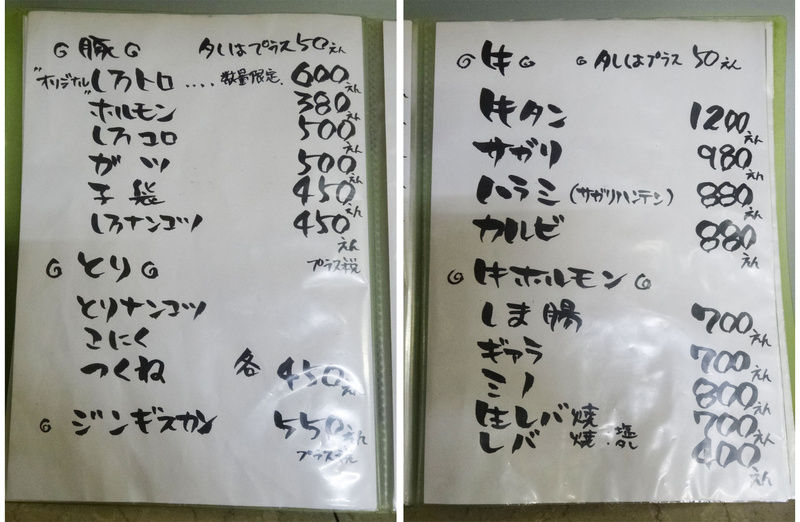 豚 タレはプラス50えん
"オリジナル"しろトロ....数量限定. 600えん
ホルモン 380えん
しろコロ 500えん
ガツ 500えん
子袋 450えん
しろナンコツ 450えん
プラス税
とり
とりナンコツ
こにく
つくね 各 450えん
ジンギスカン 550えん
プラス税
牛 タレはプラス50えん
牛タン 1200えん
サガリ 980えん
ハラミ(サガリハンテン) 880えん
カルビ 880えん
牛ホルモン
しま腸 700えん
ギアラ 700えん
ミノ 800えん
生レバ焼 700えん
レバ焼.塩し 400えん